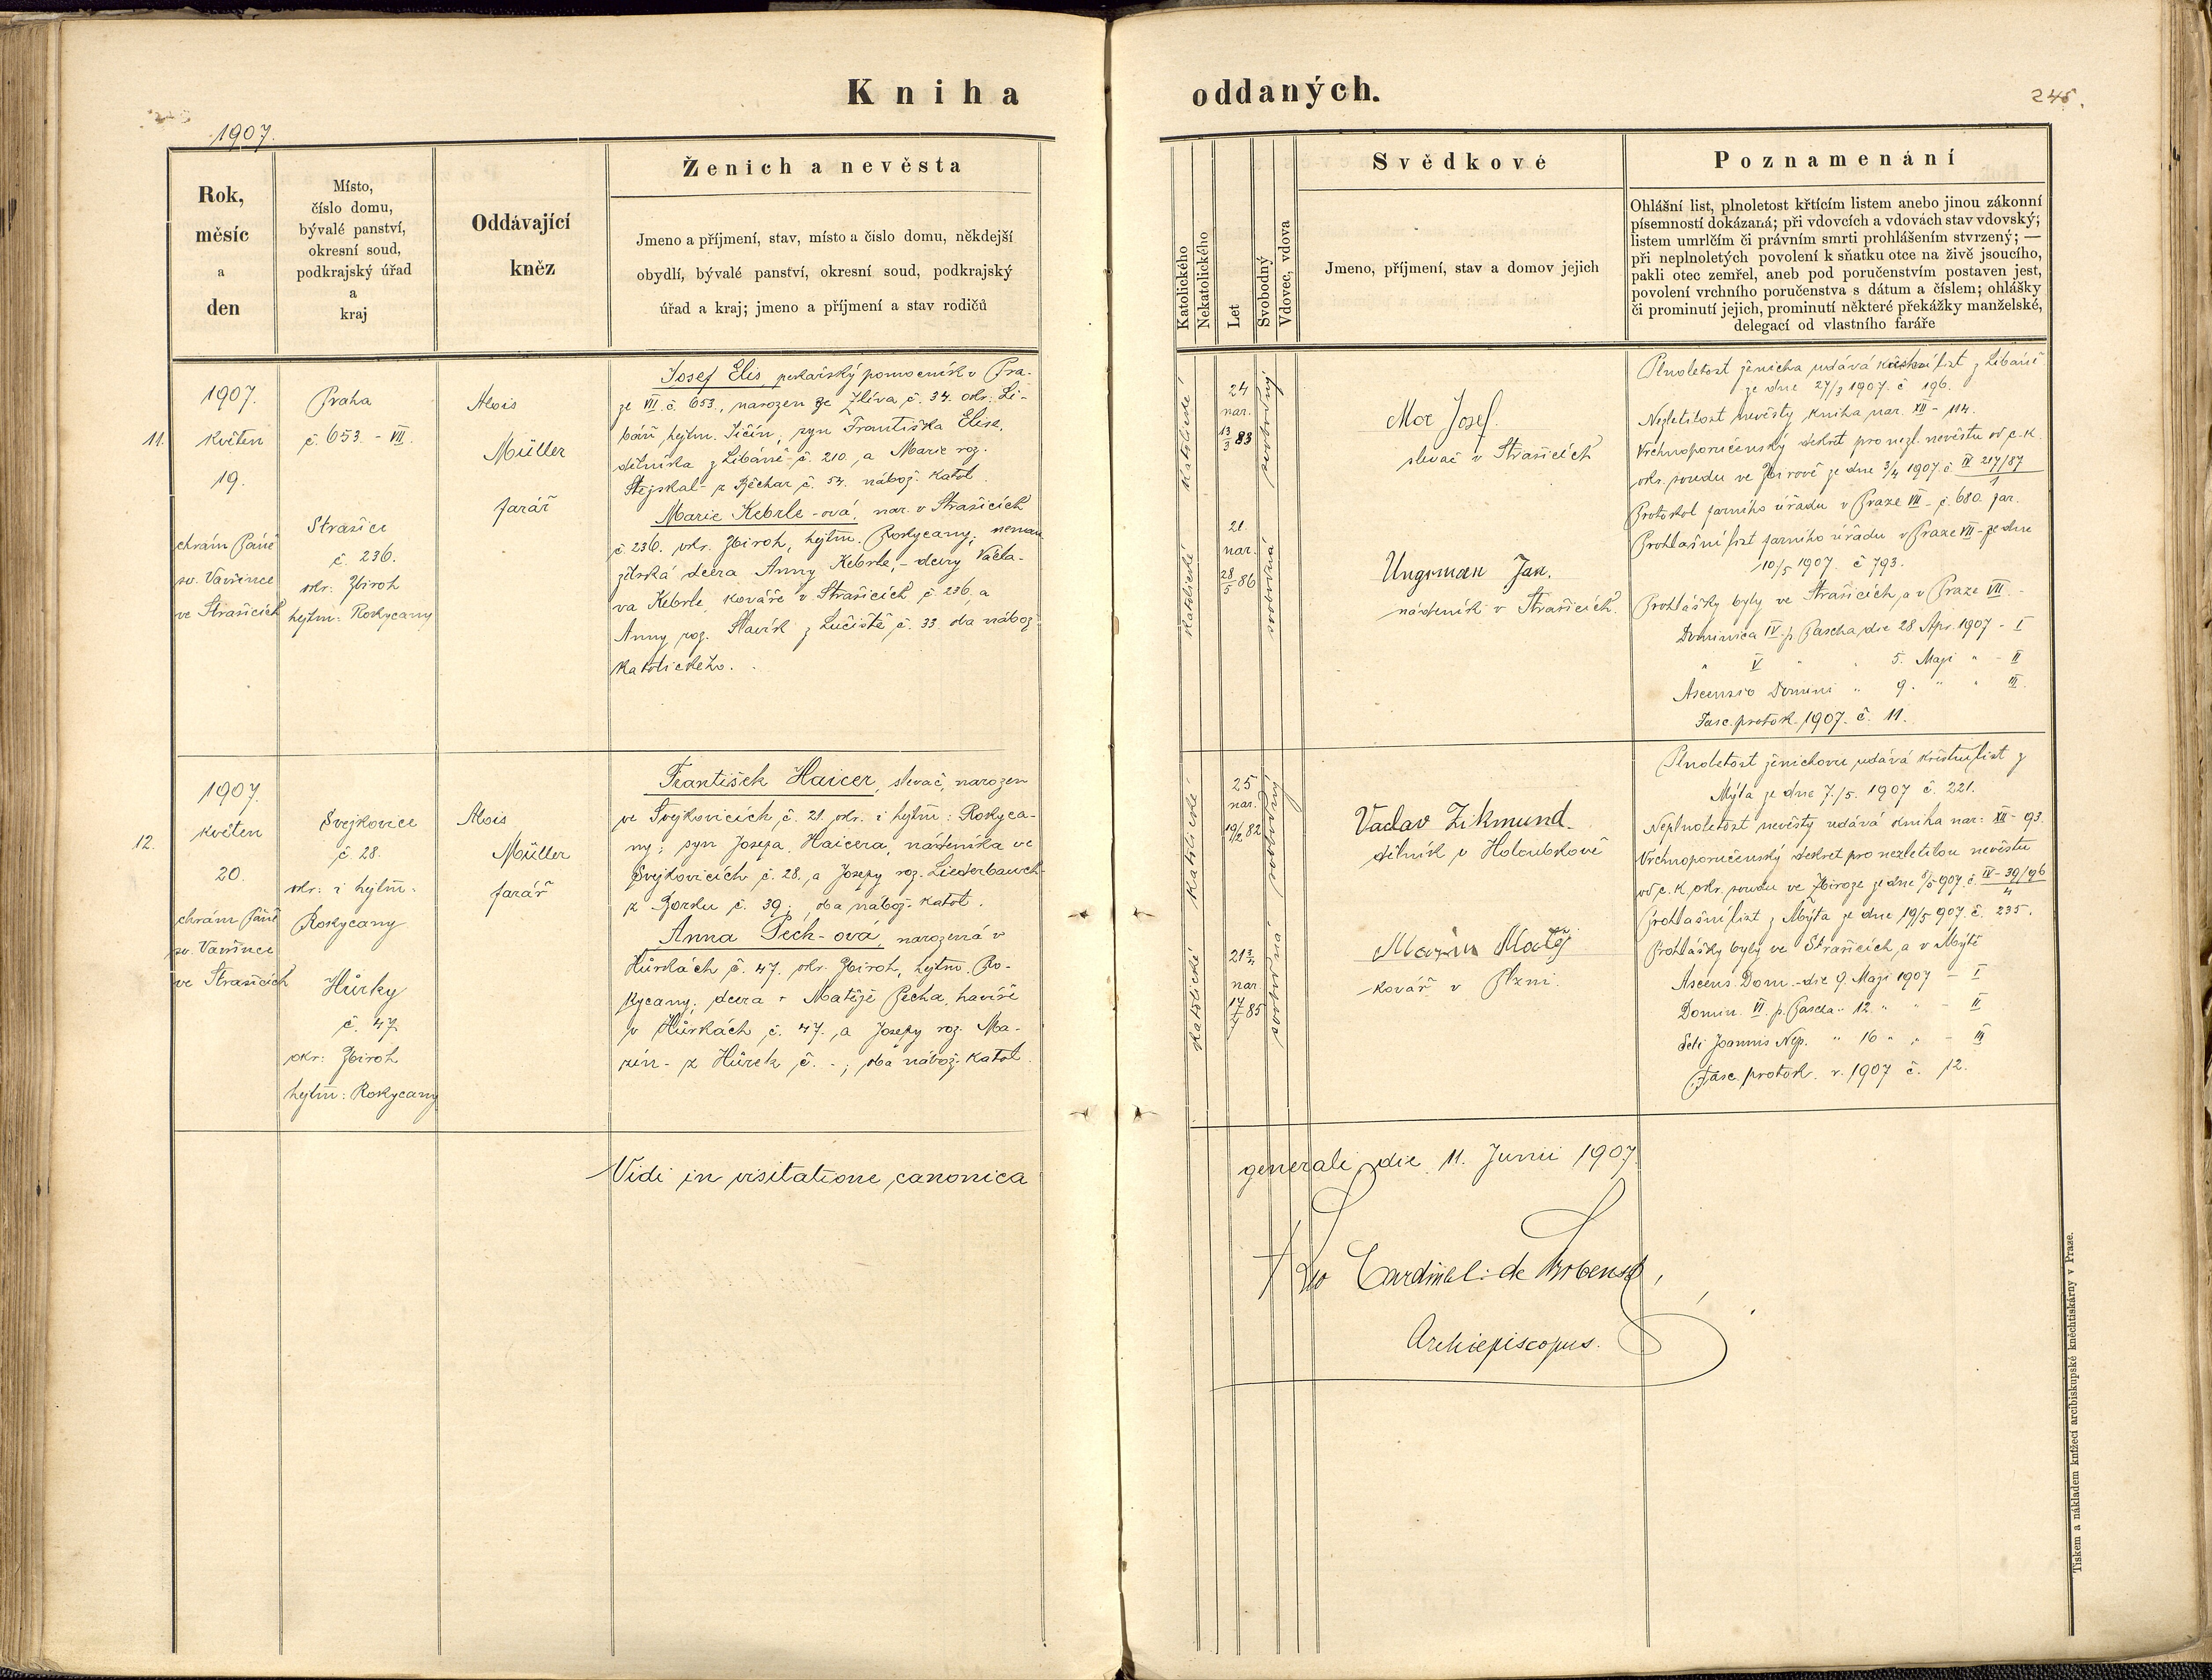 Kniha
1907.
Rok,
měsíc
a
den
Místo,
číslo domu,
bývalé panství,
okresní soud,
podkrajský úřad
a
kraj
Oddávající
kněz
Ženich a nevěsta
Jmeno a příjmení, stav, místo a čislo domu, někdejší
obydlí, bývalé panství, okresní soud, podkrajský
úřad a kraj; jmeno a příjmení a stav rodičů
11.
1907.
květen
19.
chrám Páně
sv. Vavřince
ve Strašicích
Praha
č. 653 - VII.
Strašice
č. 236.
okr: Zbiroh
hejtm: Rokycany
Alois
Müller
farář
Josef Elis, pekařský pomocník v Pra-
ze VII. č. 653., narozen ze Zliva č. 34. okr. Li-
báň hejtm. Jičín, syn Františka Elise,
dělníka z Libáně č. 210, a Marie roz.
Stejskal - z Běchar č. 54. nábož. katol.
Marie Keberle-ová, nar. v Strašicích
č. 236. okr. Zbiroh, hejtm. Rokycany; neman
želská dcera Anny Keberle, - dcery Václa-
va Keberle, kováře v Strašicích č. 236, a
Anny roz. Slavík z Lučiště č. 33. oba nábož.
katolického.
12.
1907.
květen
20.
chrám Páně
sv. Vavřince
ve Strašicích
Svejkovice
č 28.
okr: i hejtm:
Rokycany
Hůrky
č. 47
okr: Zbiroh
hejtm: Rokycany
Alois
Müller
farář
František Haicer, slevač, narozen
ve Svejkovicích č. 21. okr. i hejtm: Rokyca-
ny; syn Josefa Haicera, nádeníka ve
Svejkovicích č. 28., a Josefy roz. Liederbauch
z Borku č. 39.; oba nábož. katol.
Anna Pech-ová, narozená v
Hůrkách č. 47. okr. Zbiroh, hejtm. Ro-
kycany; dcera + Matěje Pecha, havíře
v Hůrkách č. 47., a Josefy roz. Ma-
zín - z Hůrek č. -; oba nábož. katol.
Vidi in visitatione canonica
oddaných.
245.
Katolického
Nekatolického
Let
Svobodný
Vdovec, vdova
Svědkové
Jmeno, příjmení, stav a domov jejich
Poznamenání
Ohlášní list, plnoletost křtícím listem anebo jinou zákonní
písemností dokázaná; při vdovcích a vdovách stav vdovský;
listem umrlčím či právním smrti prohlášením stvrzený; —
při neplnoletých povolení k sňatku otce na živě jsoucího,
pakli otec zemřel, aneb pod poručenstvím postaven jest,
povolení vrchního poručenstva s dátum a číslem; ohlášky
či prominutí jejich, prominutí některé překážky manželské,
delegací od vlastního faráře
katolické
24
nar.
13/3 83
svobodný
katolické
21
nar.
28/5 86
svobodná
Moc Josef.
slevač v Strašicích
Ungrman Jan.
nádeník v Strašicích.
Plnoletost ženicha udává křestní list z Libáně
ze dne 27/3 1907. č 196.
Nezletilost nevěsty kniha nar. XII - 114.
Vrchnoporučenský dekret pro nezl. nevěstu od c. k.
okr. soudu ve Zbirově ze dne 3/4 1907. č IV 217/87
Protokol farního úřadu v Praze VII - č. 680. far.
Prohlášní list farního úřadu v Praze VII - ze dne
10/5 1907. č 793.
Prohlášky byly ve Strašicích, a v Praze VII. -
Dominica IV. p Pascha, die 28. Apr. 1907 - I
" V " " 5. Maji " - II
Ascensio Domini " 9. " " III.
Fasc. protok. 1907. č. 11.
katolické
25
nar.
19/2 82
svobodný
katolické
21 3/4
nar
17/7 85
svobodná
Vaclav Zikmund.
dělník v Holoubkově
Mazín Matěj
kovář v Plzni.
Plnoletost ženichovu udává křestní list z
Mýta ze dne 7./5. 1907 č. 221.
Neplnoletost nevěsty udává kniha nar: XII - 93.
Vrchnoporučenský dekret pro nezletilou nevěstu
od c. k. okr. soudu ve Zbiroze ze dne 8/5 907. č. IV - 39/96
4
Prohlášní list z Mýta ze dne 19/5 907. č. 235.
Prohlášky byly ve Strašicích, a v Mýtě
Ascens. Dom. - die 9. Maji 1907 - I
Domin. VI. p. Pascha " 12. " " - II
Scti Joannis Nep. " 16 " " - III
Fasc. protok. r. 1907 č. 12.
generali, die 11. Junii 1907.
+ Leo Cardinal: de Skrbenský,
Archiepiscopus.
Tiskem a nákladem knížecí arcibiskupské knéchtiskárny v Praze.